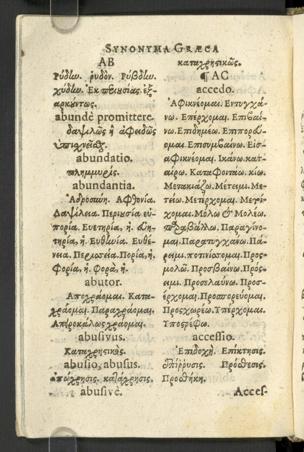 SYNONYMA GRÆCA
AB
Ῥύδην. ῥυδόν. Ῥύβδην.
χύδην. Ἐκ περιουσίας ἐξ-
αρκούντως.
abundè promittere.
δαψιλῶς ἢ ἀφειδῶς
ὑπισχνεῖσθαι
abundatio.
πλημμυρίς.
abundantia.
Ἁδροσύνη. Ἀφθονία.
Δαψίλεια. Περιουσία εὐ-
πορία. Εὐετηρία, ἡ.
τηρία, ἡ. Εὐθηνία. Εὐθέ-
νεια. Περισσεία. Πορία, ἡ.
Φορία, ἡ. Φορὰ, ἡ.
abutor.
Ἀποχράομαι. Κατα-
χράομαι. Παραχράομαι.
Ἀπειροκάλως χράομαι.
abusivus.
Καταχρηστικός.
abusio, abusus.
ἀπόχρησις. κατάχρησις.
abusivè.
καταχρηστικῶς.
¶ AC
accedo.
Ἀφικνέομαι. Εντυγχά-
νω. Επέρχομαι. Επιβαί-
νω. Επιδημέω. Επιπορεύ-
ομαι. Επισυμβαίνω. Εἰσ-
αφικνέομαι. Ἱκάνω. κατ-
αίρω. Καταφοιτάω. κίω.
Μετακιάζω. Μέτειμι. Με-
τείω. Μετέρχομαι. Μετέ-
χομαι. Μόλω & Μολέω.
Παραβάλλω. Παραγίνο-
μαι. Παραπυγχάνω. Πά-
ρειμι. ποτινίσσομαι. Προσ-
μολῶ. Προσβαίνω. Πρόσ-
ειμι. Προσελαύνω. Προσ-
έρχομαι. Προσπορεύομαι.
Προσχωρέω. Ὑπέρχομαι.
Υποστρέφω.
accessio.
Ἐπιδοχή. Επίκτησις.
ἐπίρρυσις. Πρόσθεσις.
Προσθήκη.
Acces-